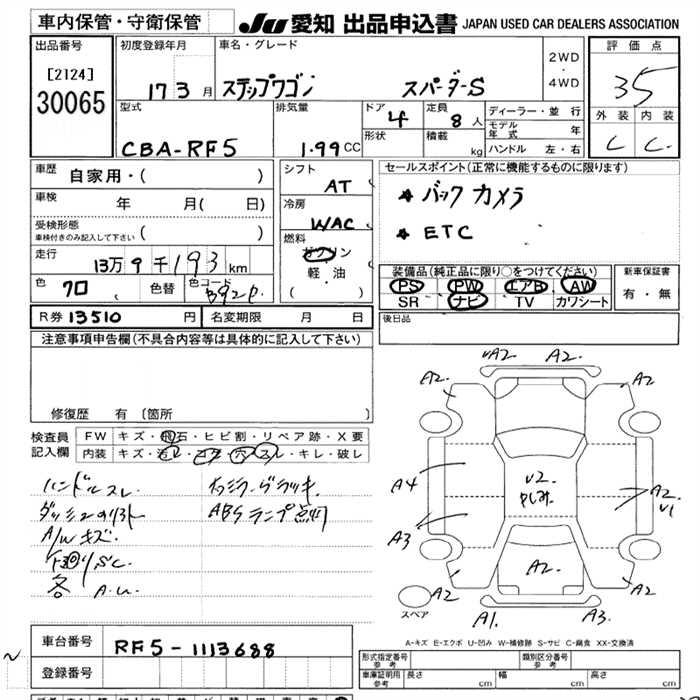 車内保管・守衛保管
JU 愛知 出品申込書 JAPAN USED CAR DEALERS ASSOCIATION
出品番号
[2124]
30065
初度登録年月
17 3 月
車名・グレード
ステップワゴン スパーダ-S
2WD
・
4WD
評価点
3.5
外装 内装
C C
型式
CBA-RF5
排気量
1.99 CC
ドア 4
形状
定員 8 人
積載 kg
ディーラー・並行
モデル年式 年
ハンドル 左・右
車歴 自家用・( )
車検 年 月( 日)
受検形態
車検付きのみ記入して下さい ( )
走行 13万9千193km
色 クロ 色替 色コード B92P
シフト AT
冷房 WAC
燃料 ガソリン
軽・油
( )
セールスポイント(正常に機能するものに限ります)
★ バックカメラ
★ ETC
装備品(純正品に限り○をつけてください)
PS PW エアB AW
SR ナビ TV カワシート
新車保証書
有・無
R券 13510 円 名変期限 月 日
後日品
注意事項申告欄(不具合内容等は具体的に記入して下さい)
修復歴 有 [箇所 ]
検査員
記入欄
FW キズ・飛石・ヒビ割・リペア跡・X要
内装 キズ・汚レ・コゲ・穴・スレ・キレ・破レ
ハンドルスレ
A/Wキズ
下回りSC
各 A.U.
ABSランプ点灯
A2 A2 A2 A2
A4
A3
U2
A2
A2
U1
A2
A2
A1 A3
スペア
A-キズ E-エクボ U-凹み W-補修跡 S-サビ C-腐食 XX-交換済
車台番号 RF5-1113688
登録番号
形式指定番号 参考
類別区分番号 参考
車庫証明用 参考 長さ cm 幅 cm 高さ cm